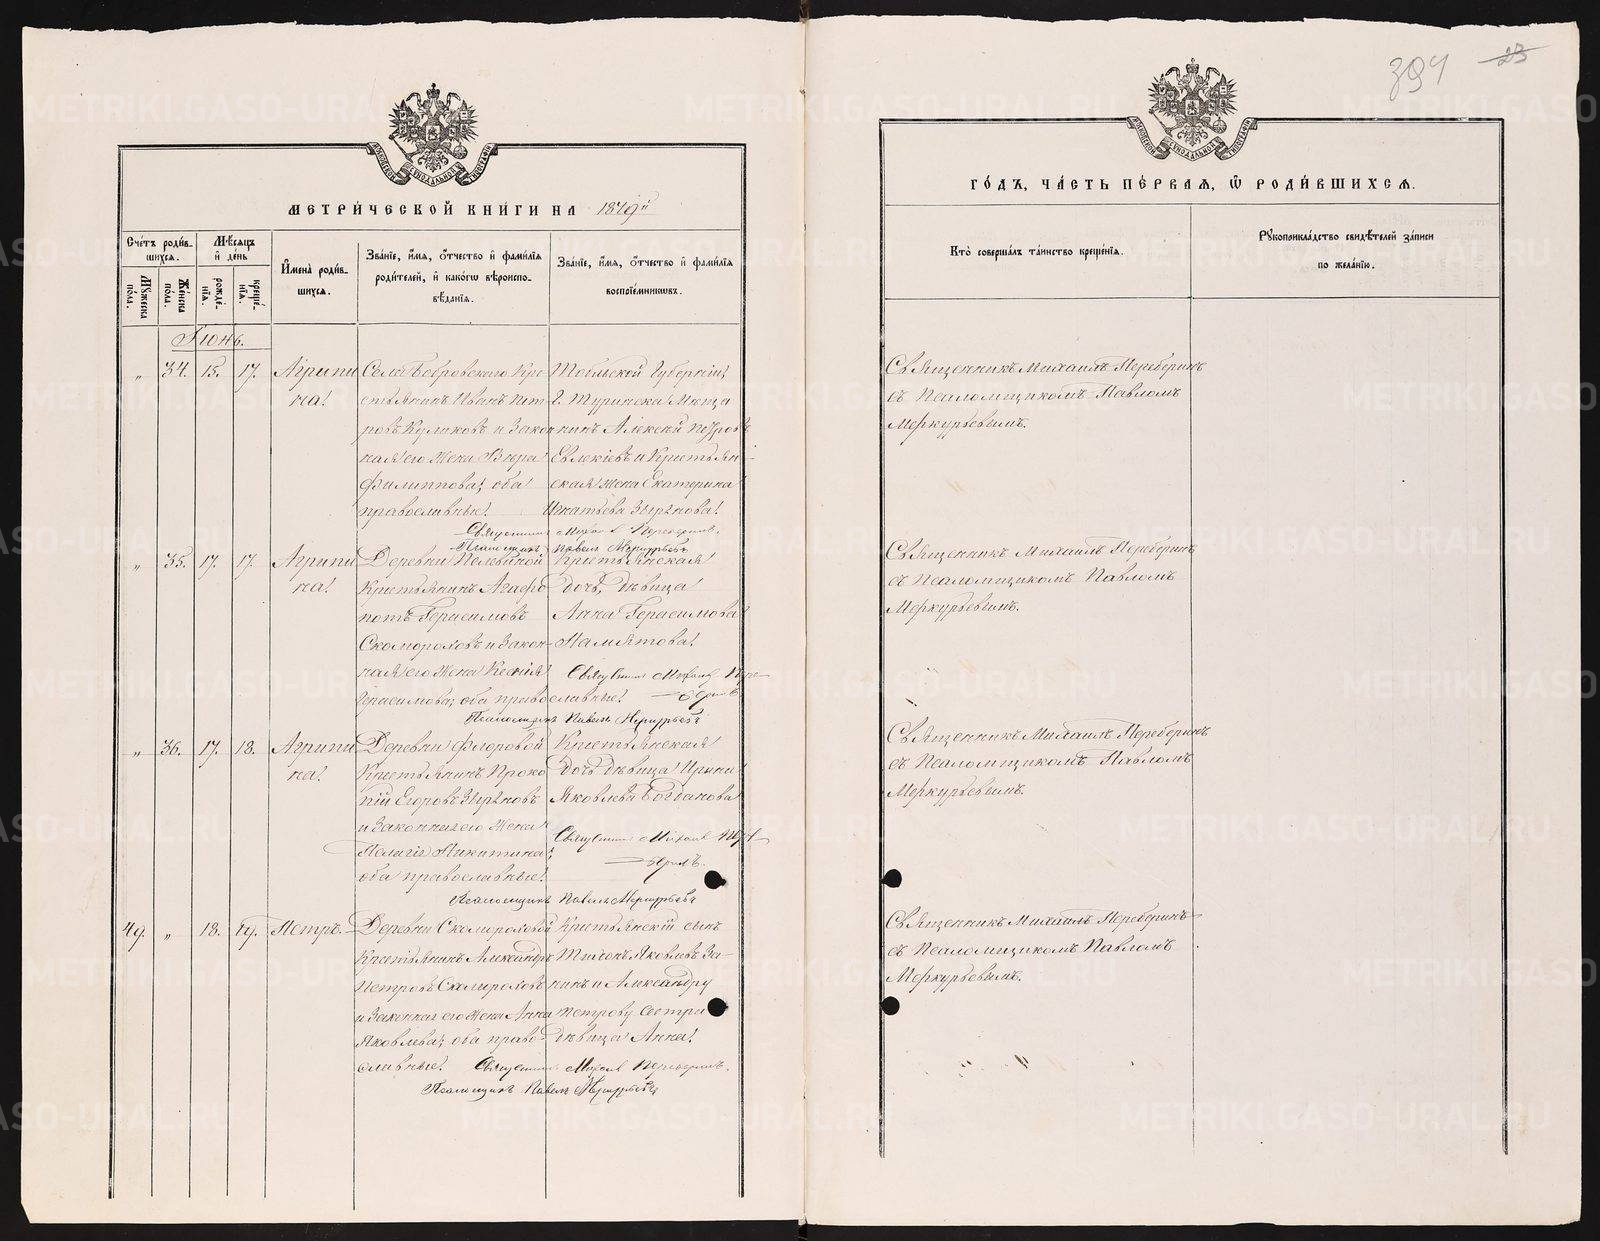 МЕТРИ́ЧЕСКОЙ КНИ́ГИ НА 1879й
Сче́тъ роди́в-
шихся.
Мѣ́сяцъ
и҆ де́нь
И҆мена̀ роди́в-
шихся.
Зва́нїе, и҆́мя, ѻ҆́тчество и҆ фами́лїя
роди́телей, и҆ како́гѡ вѣроиспо-
вѣ́данїя.
Зва́нїе, и҆́мя, ѻ҆́тчество и҆ фами́лїя
воспрїе́мникѡвъ.
Мꙋ́жеска
по́ла.
Же́нска
по́ла.
рожде́-
нїя.
креще́-
нїя.
Іюнь.
„ 34. 15. 17. Агрипи
на!
Села Бобровскаго Кре
стьянинъ Иванъ Пет-
ровъ Куликовъ и Закон
ная его жена Вѣра
Филиппова; оба
православные!
Тобльской Губерніи!
г. Туринска Мѣща
нинъ Алексѣй Петров
Евлекіевъ и Крестьян-
ская жена Екатерина
Игнатьева Зырянова!
Священникъ Михаил Переберинъ.
Псаломщикъ Павелъ Меркурьевъ
„ 35. 17. 17. Агрипи
на!
Деревни Пелевиной
Крестьянинъ Агафо
потъ Герасимовъ
Скомороховъ и Закон-
ная его жена Ксенія
Герасимова; оба православные!
Крестьянская
дочь, дѣвица
Анна Герасимова
Намятова!
Священник Михаил Пере-
беринъ
Псаломщикъ Павелъ Меркурьевъ
„ 36. 17. 18. Агрипи
на!
Деревни Флоровой
Крестьянинъ Проко
пій Егоровъ Зыряновъ
и Законная его жена
Пелагія Никитина;
оба православные!
Крестьянская
дочь дѣвица Ирина
Яковлева Богданова
Священник Михаил Пере-
беринъ.
Псаломщикъ Павелъ Меркурьевъ
49. „ 18. 19. Петръ.
Деревни Скомороховой
Крестьянинъ Александръ
Петровъ Скомороховъ
и Законная его жена Анна
Яковлева; оба право-
славные!
Крестьянскій сынъ
Тихонъ Яковлевъ За-
нинъ и Александру
Петрову сестра
дѣвица Анна!
Священник Михаил Переберинъ.
Псаломщикъ Павелъ Меркурьевъ
394 23
ГО́ДЪ, ЧА́СТЬ ПЕ́РВАЯ, Ѡ҆ РОДИ́ВШИХСЯ.
Кто̀ соверша́лъ та́инство креще́нїя.
Рꙋкоприкла́дство свидѣ́телей за́писи
по жела́нїю.
Священникъ Михаилъ Переберинъ
съ Псаломщикомъ Павломъ
Меркурьевымъ.
Священникъ Михаилъ Переберинъ
съ Псаломщикомъ Павломъ
Меркурьевымъ.
Священникъ Михаилъ Переберинъ
съ Псаломщикомъ Павломъ
Меркурьевымъ.
Священникъ Михаилъ Переберинъ
съ Псаломщикомъ Павломъ
Меркурьевымъ.
METRIKI.GASO-URAL.RU